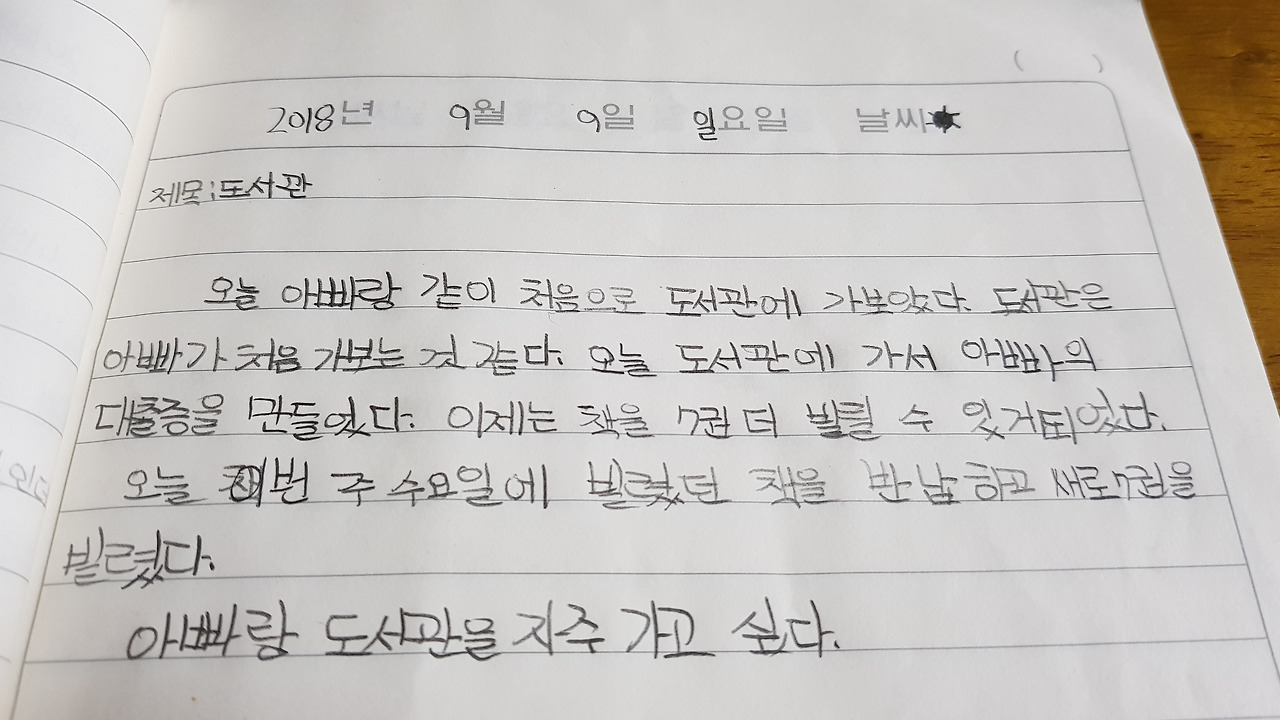 ( )
2018년 9월 9일 일요일 날씨★
제목:도서관
오늘 아빠랑 같이 처음으로 도서관에 가보았다. 도서관은
아빠가 처음 가보는 것 같다. 오늘 도서관에 가서 아빠의
대출증을 만들었다. 이제는 책을 7권 더 빌릴 수 있게되었다.
오늘 저번 주 수요일에 빌렸던 책을 반납하고 새로7권을
빌렸다.
아빠랑 도서관을 자주 가고 싶다.